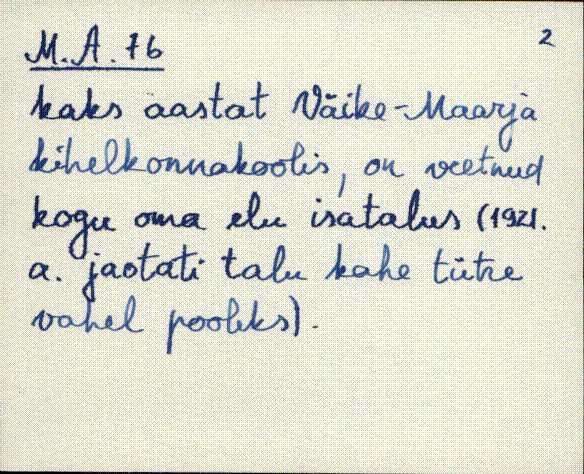 M.A.76 2
kaks aastat Väike-Maarja
kihelkonnakoolis, on veetnud
kogu oma elu isatalus (1921.
a. jaotati talu kahe tütre
vahel pooleks).